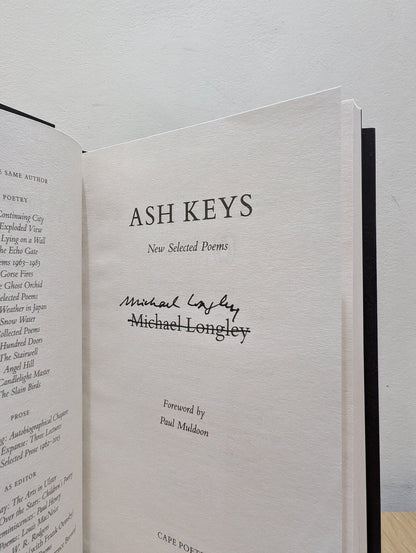 SAME AUTHOR
POETRY
Continuing City
Exploded View
Lying on a Wall
The Echo Gate
1963–1983
Gorse Fires
Ghost Orchid
Selected Poems
Weather in Japan
Snow Water
Collected Poems
Hundred Doors
The Stairwell
Angel Hill
Candlelight Master
The Slain Birds
PROSE
Autobiographical Chapters
Expanse: Three Lectures
Selected Prose
AS EDITOR
The Arts in Ulster
Over the Stars: Children's Poetry
Paul Henry
Poems: Louis MacNeice
W. R. Rodgers
ASH KEYS
New Selected Poems
Michael Longley
Michael Longley
Foreword by
Paul Muldoon
CAPE